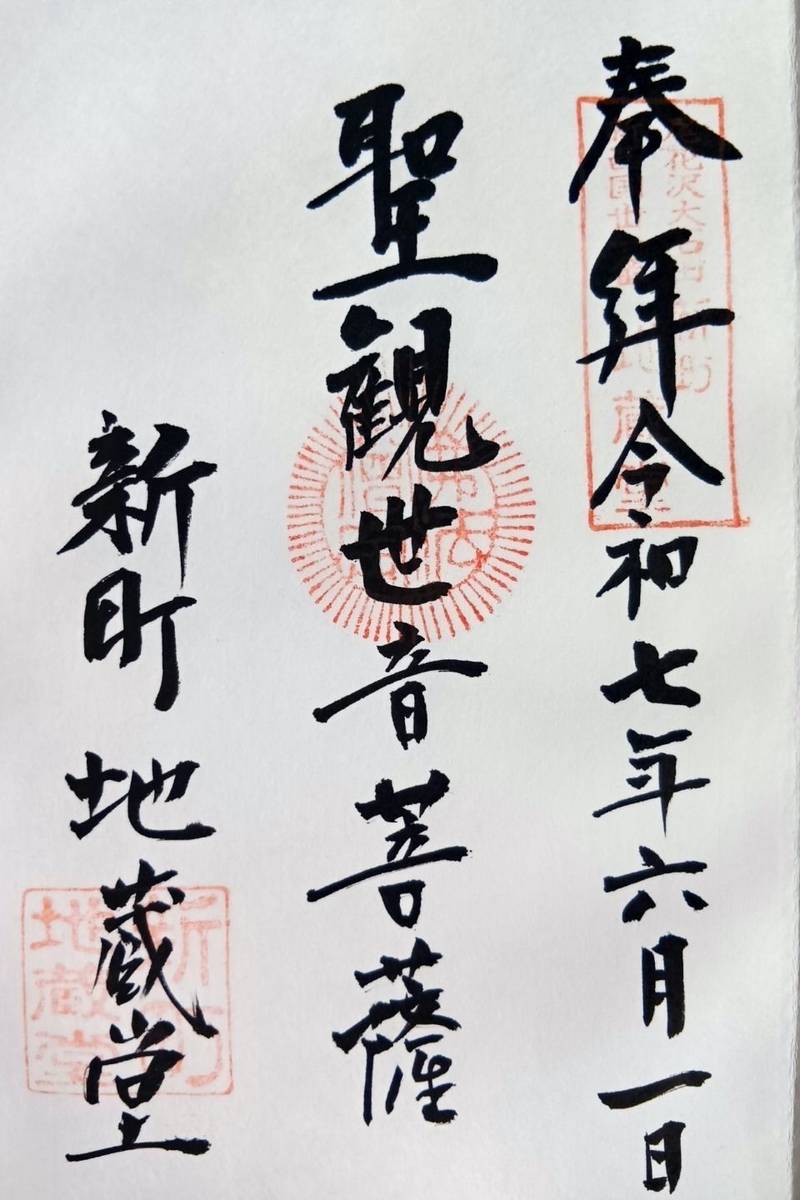 奉拝令和七年六月一日
聖観世音菩薩
新町地蔵堂
新町
地蔵堂